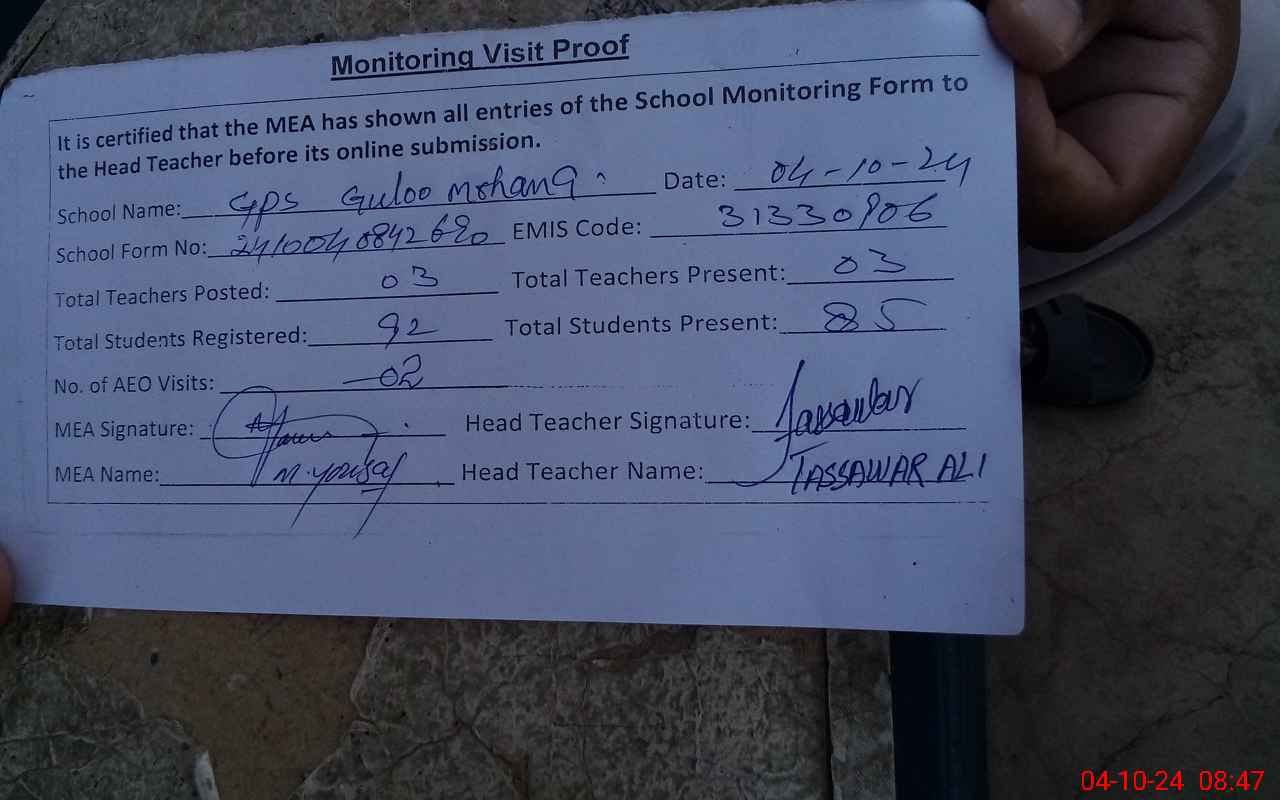 Monitoring Visit Proof
It is certified that the MEA has shown all entries of the School Monitoring Form to
the Head Teacher before its online submission.
School Name: GPS Guloo mohana Date: 04-10-24
School Form No: EMIS Code: 31330906
Total Teachers Posted: 03 Total Teachers Present: 03
Total Students Registered: 92 Total Students Present: 85
No. of AEO Visits: 02
MEA Signature: Head Teacher Signature: Tassawar
MEA Name: M. yousaf Head Teacher Name: TASSAWAR ALI
04-10-24 08:47